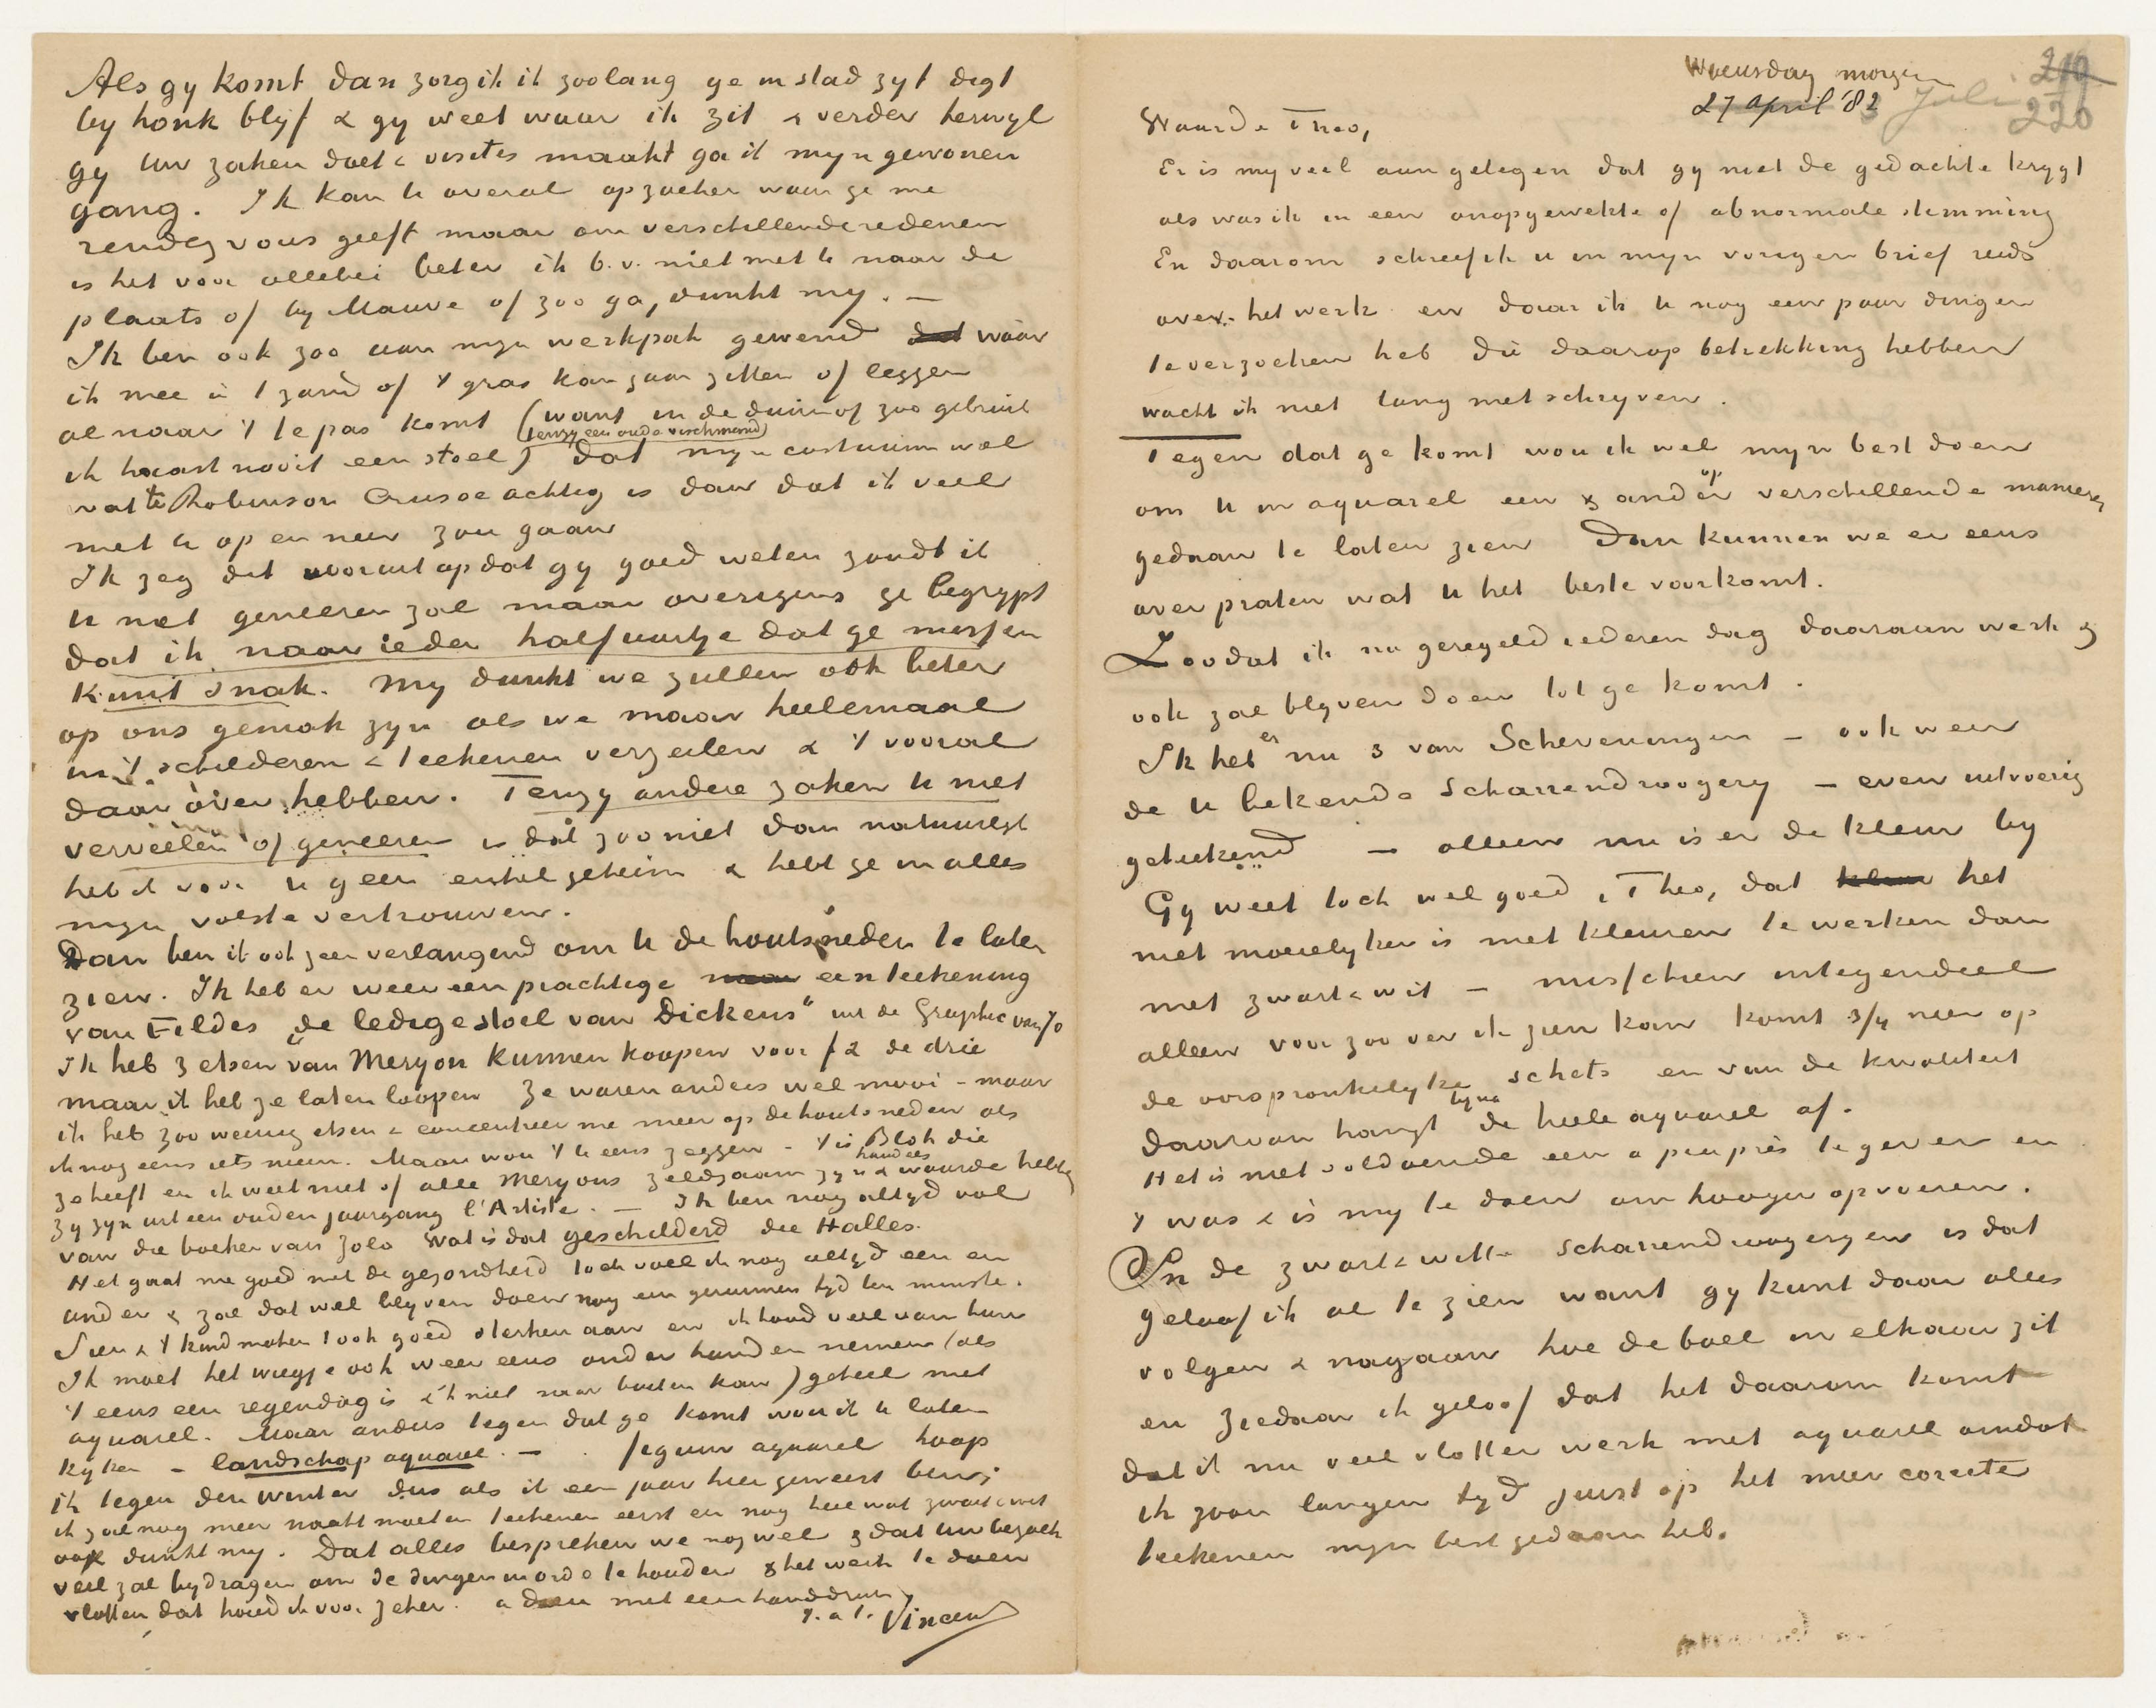 Als gy komt dan zorg ik ik zoolang ge in stad zyt digt
by honk blyf & gy weet waar ik zit & verder terwyl
gy uw zaken doet & visites maakt ga ik myn gewonen
gang. Ik kan u overal opzoeken waar ge me
rendez vous geeft maar om verschillende redenen
is het voor allebei beter ik b.v. niet met u naar de
plaats of by Mauve of zoo ga, dunkt my. —
Ik ben ook zoo aan myn werkpak gewend dat waar
ik mee in 't zand of 't gras kan gaan zitten of leggen
al naar 't te pas komt (want in de duin of zoo gebruik
ik haast nooit een stoel) (tenzy een oude vischmand) dat myn costuum wel
wat te Robinson Crusoe achtig is dan dat ik veel
met u op en neer zou gaan
Ik zeg dit vooruit opdat gy goed weten zoudt ik
u niet geneeren zal maar overigens ge begrypt
dat ik naar ieder halfuurtje dat ge missen
kunt snak. My dunkt we zullen ook beter
op ons gemak zyn als we maar heelemaal
in 't schilderen & teekenen verzeilen & 't vooral
daar over hebben. Tenzy andere zaken u niet
verveelen of geneeren is dat zoo niet dan natuurlyk
heb ik voor u geen enkel geheim & hebt ge in alles
myn volste vertrouwen.
Dan ben ik ook zeer verlangend om u de houtsneden te laten
zien. Ik heb er weer een prachtige een teekening
van Fildes „de ledige stoel van Dickens" uit de Graphic van 70
Ik heb 3 etsen van Meryon kunnen koopen voor f2 de drie
maar ik heb ze laten loopen Ze waren anders wel mooi – maar
ik heb zoo weinig etsen & concentreer me meer op de houtsneden als
ik nog eens iets neem. Maar wou 't u eens zeggen – 't is Blok die
ze heeft en ik weet niet of alle Meryons zeldzaam zyn & handels waarde hebben
zy zyn uit een ouden jaargang l'Artiste. — Ik ben nog altyd vol
van die boeken van Zola Wat is dat geschilderd die Halles.
Het gaat me goed met de gezondheid toch voel ik nog altyd een en
ander & zal dat wel blyven doen nog een geruimen tyd ten minste.
Sien & 't kind maken 't ook goed & sterken aan en ik houd veel van hun
Ik moet het wiegje ook weer eens onder handen nemen (als
't eens een regendag is & ik niet naar buiten kan) geheel met
aquarel. Maar anders tegen dat ge komt wou ik u laten
kyken – landschap aquarel. — figuur aquarel hoop
ik tegen den winter dus als ik een jaar hier geweest ben;
ik zal nog meer naakt moeten teekenen eerst en nog heel wat zwart & wit
ook dunkt my. Dat alles bespreken we nog wel & dat uw bezoek
veel zal bydragen om de dingen in orde te houden & het werk te doen
vlotten dat houd ik voor zeker. adieu met een handdruk
t. à t. Vincent
Woensdag morgen
27 April '82 Juli
219
220
Waarde Theo,
Er is my veel aan gelegen dat gy niet de gedachte krygt
als was ik in een onopgewekte of abnormale stemming
En daarom schreef ik u in myn vorigen brief reeds
over het werk en daar ik u nog een paar dingen
te verzoeken heb die daarop betrekking hebben
wacht ik niet lang met schryven.
Tegen dat ge komt wou ik wel myn best doen
om u in aquarel een & ander op verschillende manieren
gedaan te laten zien Dan kunnen we er eens
over praten wat u het beste voorkomt.
Zoodat ik nu geregeld iederen dag daaraan werk &
ook zal blyven doen tot ge komt.
Ik heb er nu 3 van Scheveningen – ook weer
de u bekende Scharrendroogery – even uitvoerig
geteekend – alleen nu is er de kleur by
Gy weet toch wel goed, Theo, dat het
niet moeielyker is met kleuren te werken dan
met zwart & wit – misschien integendeel
alleen voor zoo ver ik zien kan komt 3/4 neer op
de oorspronkelyke schets en van de kwaliteit
daarvan hangt byna de heele aquarel af.
Het is niet voldoende een à peu près te geven en
't was & is my te doen om hooger opvoeren.
In de zwart & witte scharrendroogeryen is dat
geloof ik al te zien want gy kunt daar alles
volgen & nagaan hoe de boel in elkaar zit
en ziedaar ik geloof dat het daarom komt
dat ik nu veel vlotter werk met aquarel omdat
ik zoo'n langen tyd juist op het meer correcte
teekenen myn best gedaan heb.